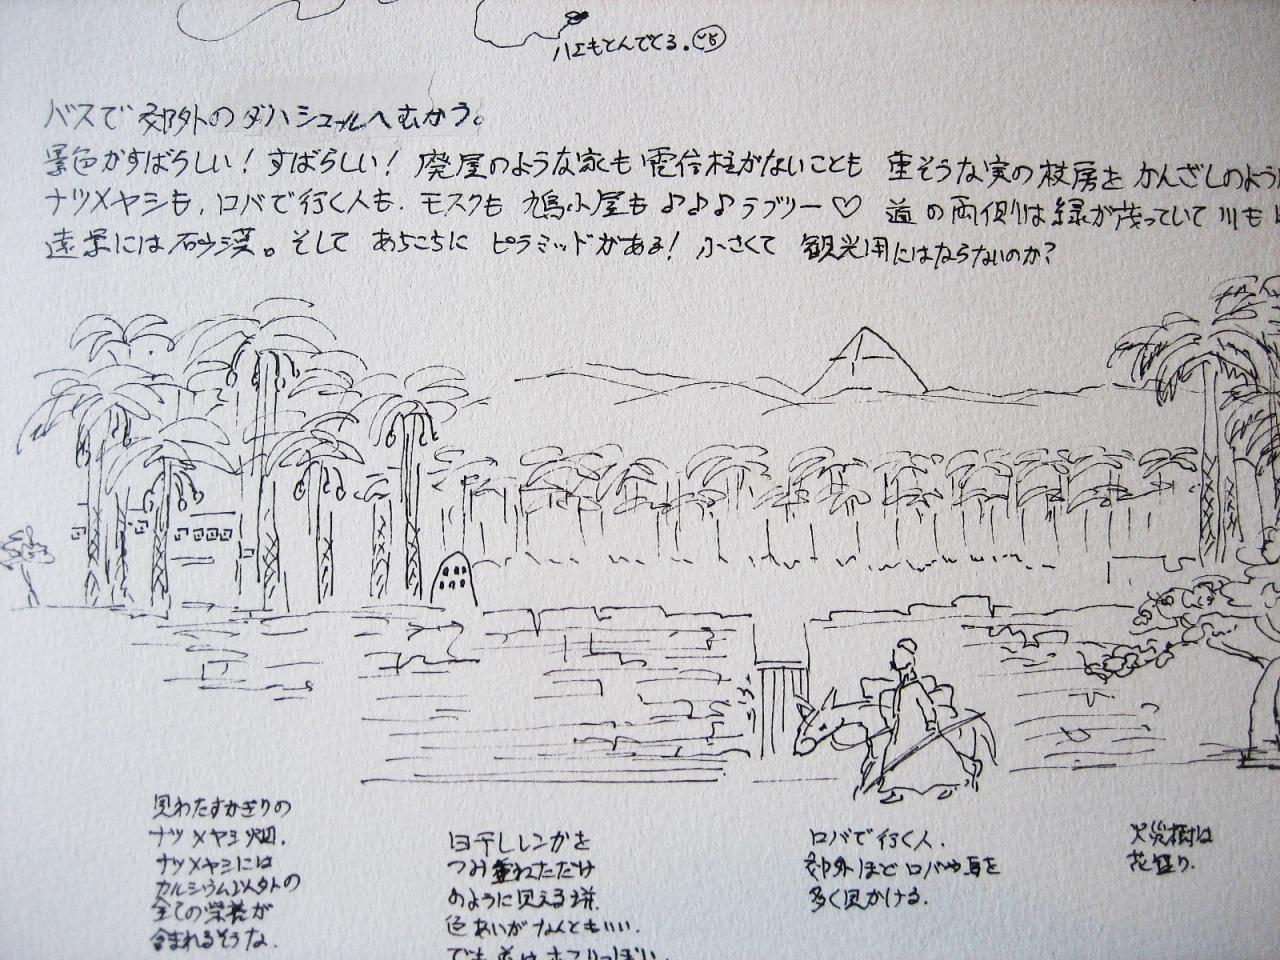 ハエもとんでくる。
バスで郊外のダハシュールへむかう。
景色がすばらしい！すばらしい！廃屋のような家も 電信柱がないことも 重そうな実の枝房を かんざしのよう
ナツメヤシも、ロバで行く人も、モスクも 鳩小屋も♪♪♪ラブリー♡ 道の両側は緑が茂っていて 川も
遠景には砂漠。そして あちこちに ピラミッドがある！小さくて 観光用にはならないのか？
見わたすかぎりの
ナツメヤシ畑.
ナツメヤシには
カルシウム以外の
全ての栄養が
含まれるそうな.
日干しレンガを
つみ重ねただけ
のように見える塀.
色あいがなんともいい.
でも 道は ホコリっぽい.
ロバで行く人.
郊外ほど ロバや馬を
多く見かける.
火災樹は
花盛り.